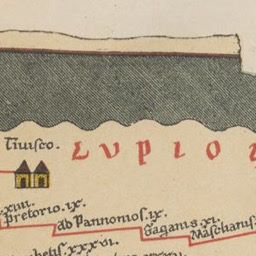 Tivisco.
LVPIO
.XIIII.
Pretorio.IX.
Ad Pannonios.IX.
Gaganis.XI.
Masclianis
XXXVI.